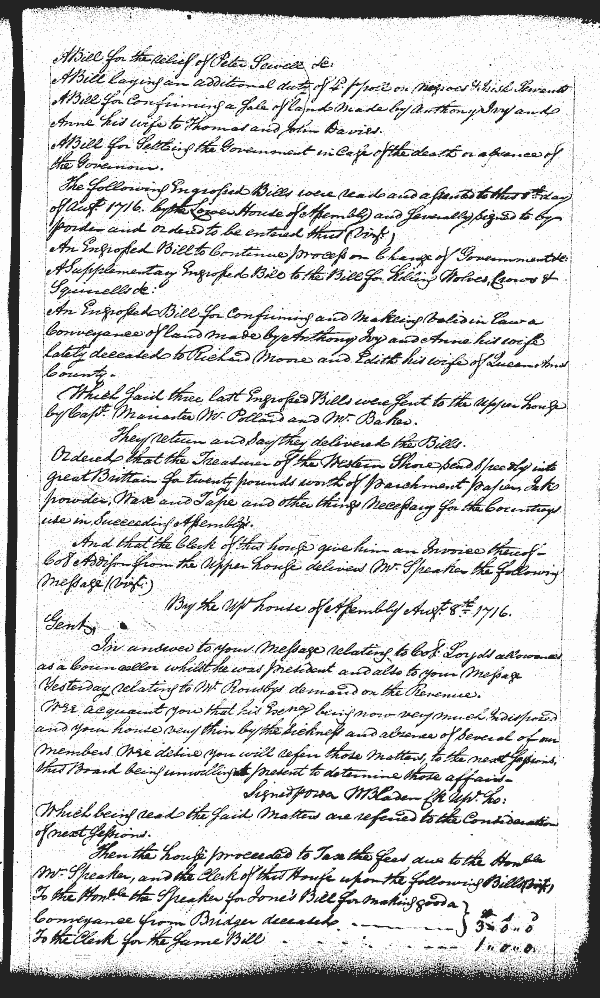 A Bill for the relief of Peter Sewell &c:
A Bill laying an additional duty of on negroes & Irish Servants
A Bill for Confirming a Sale of land made by Anthony Ivy and
Anne his wife to Thomas and John Davies.
A Bill for Settling the Government in Case of the death or absence of
the Governour.
The following Engrossed Bills were read and assented to this 8th day
of Augt 1716. by the Lower House of Assembly and severally signed to by
order and ordered to be entered thus (vizt)
An Engrossed Bill to Continue process on Change of Government &c
A Supplementary Engrossed Bill to the Bill for killing Wolves, Crows &
Squirrells &c
An Engrossed Bill for Confirming and making valid in Law a
Conveyance of land made by Anthony Ivy and Anne his wife
lately deceased to Richard Moore and Edith his wife of Queen Anns
County.
Which said three last Engrossed Bills were sent to the upper house
by Capt. Mariarter Mr. Pollard and Mr. Baker.
They return and say they delivered the Bills.
Ordered that the Treasurer of the Western Shore send speedily into
great Brittain for twenty pounds worth of parchment paper, Ink
powder, Wax and Tape and other things necessary for the Countrys
use in Succeeding Assemblys.
And that the Clerk of this house give him an Invoice thereof
Col Addison from the upper house delivers Mr. Speaker the following
message (vizt)
By the Upr house of Assembly Augt 8th 1716.
Gent,
In answer to your Message relating to Col. Loyds allowances
as a Councellor whilst he was president and also to your Message
Yesterday relating to Mr Rousbys demand on the Revenue.
Wee acquaint you that his Excncy being now very much Indisposed
and your house very thin by the Sickness and absence of Several of our
members Wee desire you will refer those Matters, to the next Sessions,
this Board being unwilling at present to determine those affairs
Signed p order WBladen Clk Upr ho:
Which being read the said Matters are referred to the Consideration
of next Sessions.
Then the house proceeded to Tax the fees due to the Honble
Mr Speaker, and the Clerk of this House upon the following Bills (vizt)
To the Honble the Speaker for Jone's Bill for making good a
Conveyance from Bridger deceased 3 " 0 " 0
To the Clerk for the Same Bill 1 " 0 " 0